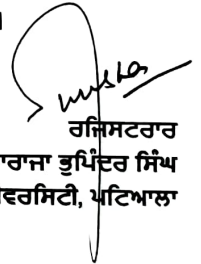 ਰਜਿਸਟਰਾਰ
ਾਰਾਜਾ ਭੁਪਿੰਦਰ ਸਿੰਘ
ਵਰਸਿਟੀ, ਪਟਿਆਲਾ